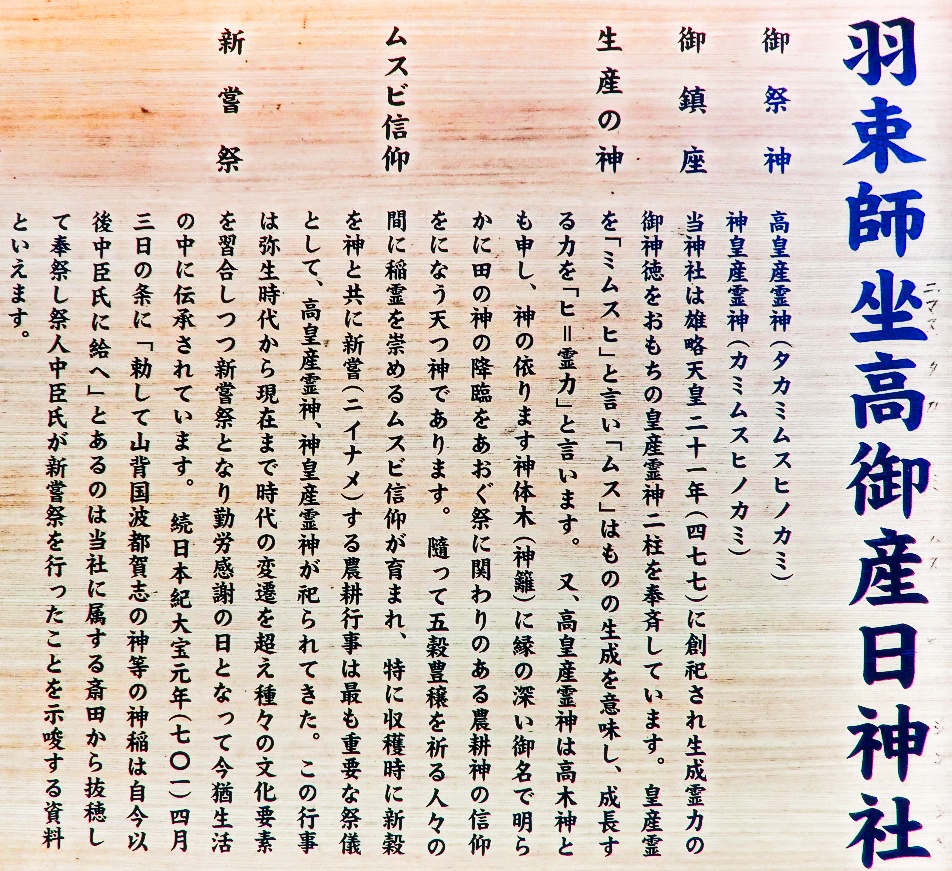 羽束師坐高御産日神社
御祭神
高皇産霊神（タカミムスヒノカミ）
神皇産霊神（カミムスヒノカミ）
御鎮座
当神社は雄略天皇二十一年（四七七）に創祀され生成霊力の
御神徳をおもちの皇産霊神二柱を奉斉しています。皇産霊
生産の神
を「ミムスヒ」と言い「ムス」はものの生成を意味し、成長す
る力を「ヒ＝霊力」と言います。又、高皇産霊神は高木神と
も申し、神の依ります神体木（神籬）に縁の深い御名で明ら
かに田の神の降臨をあおぐ祭に関わりのある農耕神の信仰
をになう天つ神であります。隨って五穀豊穣を祈る人々の
ムスビ信仰
間に稲霊を崇めるムスビ信仰が育まれ、特に収穫時に新穀
を神と共に新嘗（ニイナメ）する農耕行事は最も重要な祭儀
として、高皇産霊神、神皇産霊神が祀られてきた。この行事
は弥生時代から現在まで時代の変遷を超え種々の文化要素
新嘗祭
を習合しつつ新嘗祭となり勤労感謝の日となって今猶生活
の中に伝承されています。続日本紀大宝元年（七〇一）四月
三日の条に「勅して山背国波都賀志の神等の神稲は自今以
後中臣氏に給へ」とあるのは当社に属する斎田から抜穂し
て奉祭し祭人中臣氏が新嘗祭を行ったことを示唆する資料
といえます。